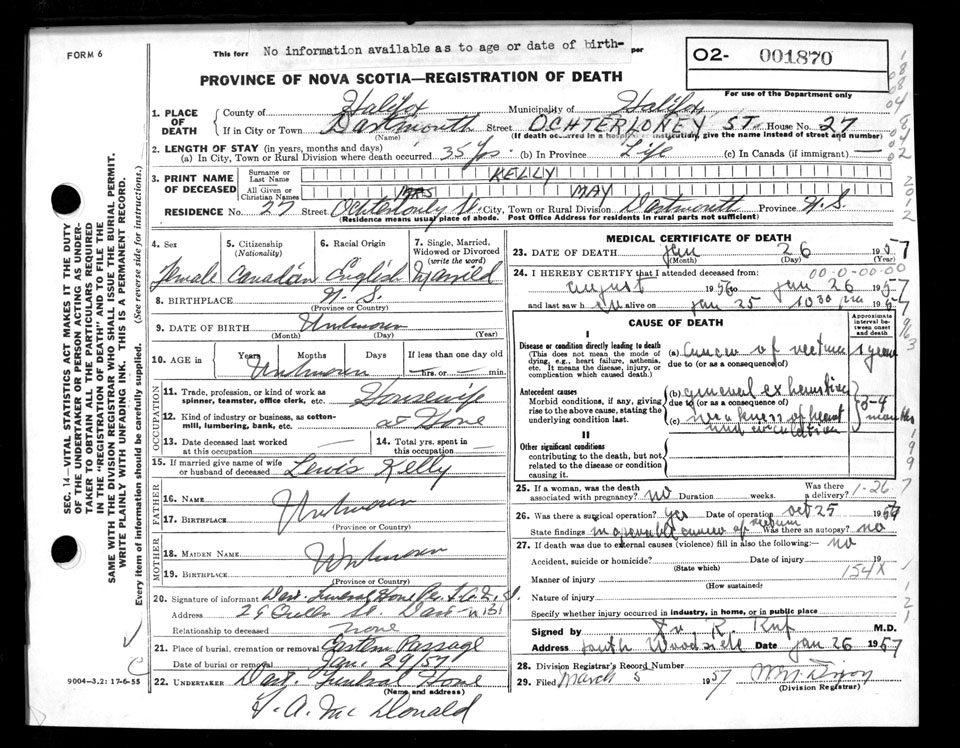 FORM 6
This form No information available as to age or date of birth- per
O2- 001870
For use of the Department only
PROVINCE OF NOVA SCOTIA—REGISTRATION OF DEATH
1. PLACE OF DEATH
County of Halifax Municipality of Halifax
If in City or Town Dartmouth Street OCHTERLONEY ST. House No. 27
(Name) (If death occurred in a hospital or institution, give the name instead of street and number)
2. LENGTH OF STAY (in years, months and days)
(a) In City, Town or Rural Division where death occurred 35 yrs. (b) In Province Life (c) In Canada (if immigrant) —
3. PRINT NAME OF DECEASED
Surname or Last Name KELLY
All Given or Christian Names MRS MAY
RESIDENCE No. 27 Street Ochterloney St. City, Town or Rural Division Dartmouth Province N.S.
(Residence means usual place of abode. Post Office Address for residents in rural parts not sufficient)
4. Sex
Female
5. Citizenship (Nationality)
Canadian
6. Racial Origin
English
7. Single, Married, Widowed or Divorced (write the word)
Married
8. BIRTHPLACE N. S.
(Province or Country)
9. DATE OF BIRTH Unknown
(Month) (Day) (Year)
10. AGE in Years Months Days If less than one day old
Unknown — hrs. or — min.
OCCUPATION
11. Trade, profession, or kind of work as spinner, teamster, office clerk, etc. Housewife
12. Kind of industry or business, as cotton-mill, lumbering, bank, etc. at Home
13. Date deceased last worked at this occupation —
14. Total yrs. spent in this occupation —
15. If married give name of wife or husband of deceased Lewis Kelly
FATHER
16. NAME Unknown
17. BIRTHPLACE
(Province or Country)
MOTHER
18. MAIDEN NAME Unknown
19. BIRTHPLACE
(Province or Country)
20. Signature of informant Dart. Funeral Home
Address
Relationship to deceased none
21. Place of burial, cremation or removal Eastern Passage
Date of burial or removal Jan. 29/57
22. UNDERTAKER Dart. Funeral Home
(Name and address)
9004—3,2: 17-6-55
MEDICAL CERTIFICATE OF DEATH
23. DATE OF DEATH Jan 26 1957
(Month) (Day) (Year)
24. I HEREBY CERTIFY that I attended deceased from:
00-0-00-00
August 1956 to Jan 26 1957
and last saw her alive on Jan 25 10 30 pm 1957
CAUSE OF DEATH
Approximate interval between onset and death
I
Disease or condition directly leading to death
(This does not mean the mode of dying, e.g., heart failure, asthenia, etc. It means the disease, injury, or complication which caused death.)
(a) cancer of rectum 1 year
due to (or as a consequence of)
Antecedent causes
Morbid conditions, if any, giving rise to the above cause, stating the underlying condition last.
(b) general exhaustion
due to (or as a consequence of)
(c) weakness of heart and circulation
3-4 months
II
Other significant conditions
contributing to the death, but not related to the disease or condition causing it.
25. If a woman, was the death associated with pregnancy? no Duration weeks. Was there a delivery?
1-26
26. Was there a surgical operation? yes Date of operation Oct 25 1956
State findings inoperable cancer of rectum Was there an autopsy? no
27. If death was due to external causes (violence) fill in also the following:— no
Accident, suicide or homicide? Date of injury 19
(State which)
154X
Manner of injury
(How sustained)
Nature of injury
Specify whether injury occurred in industry, in home, or in public place
Signed by Dr R. M.D.
Address South Woodside Date Jan 26 1957
28. Division Registrar's Record Number
29. Filed March 5 1957
(Division Registrar)
J. A. Mc Donald
SEC. 14—VITAL STATISTICS ACT MAKES IT THE DUTY OF THE UNDERTAKER OR PERSON ACTING AS UNDERTAKER TO OBTAIN ALL THE PARTICULARS REQUIRED IN THE "REGISTRATION OF DEATH" AND TO FILE THE SAME WITH THE DIVISION REGISTRAR WHO SHALL ISSUE THE BURIAL PERMIT.
WRITE PLAINLY WITH UNFADING INK. THIS IS A PERMANENT RECORD.
Every item of information should be carefully supplied. (See reverse side for instructions.)